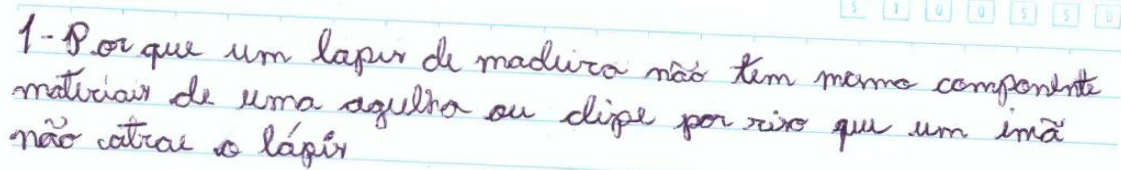 S T Q Q S S D
1- Por que um lapis de madeira não tem mesmo componente
materiais de uma agulha ou clipe por isso que um imã
não atrai o lápis